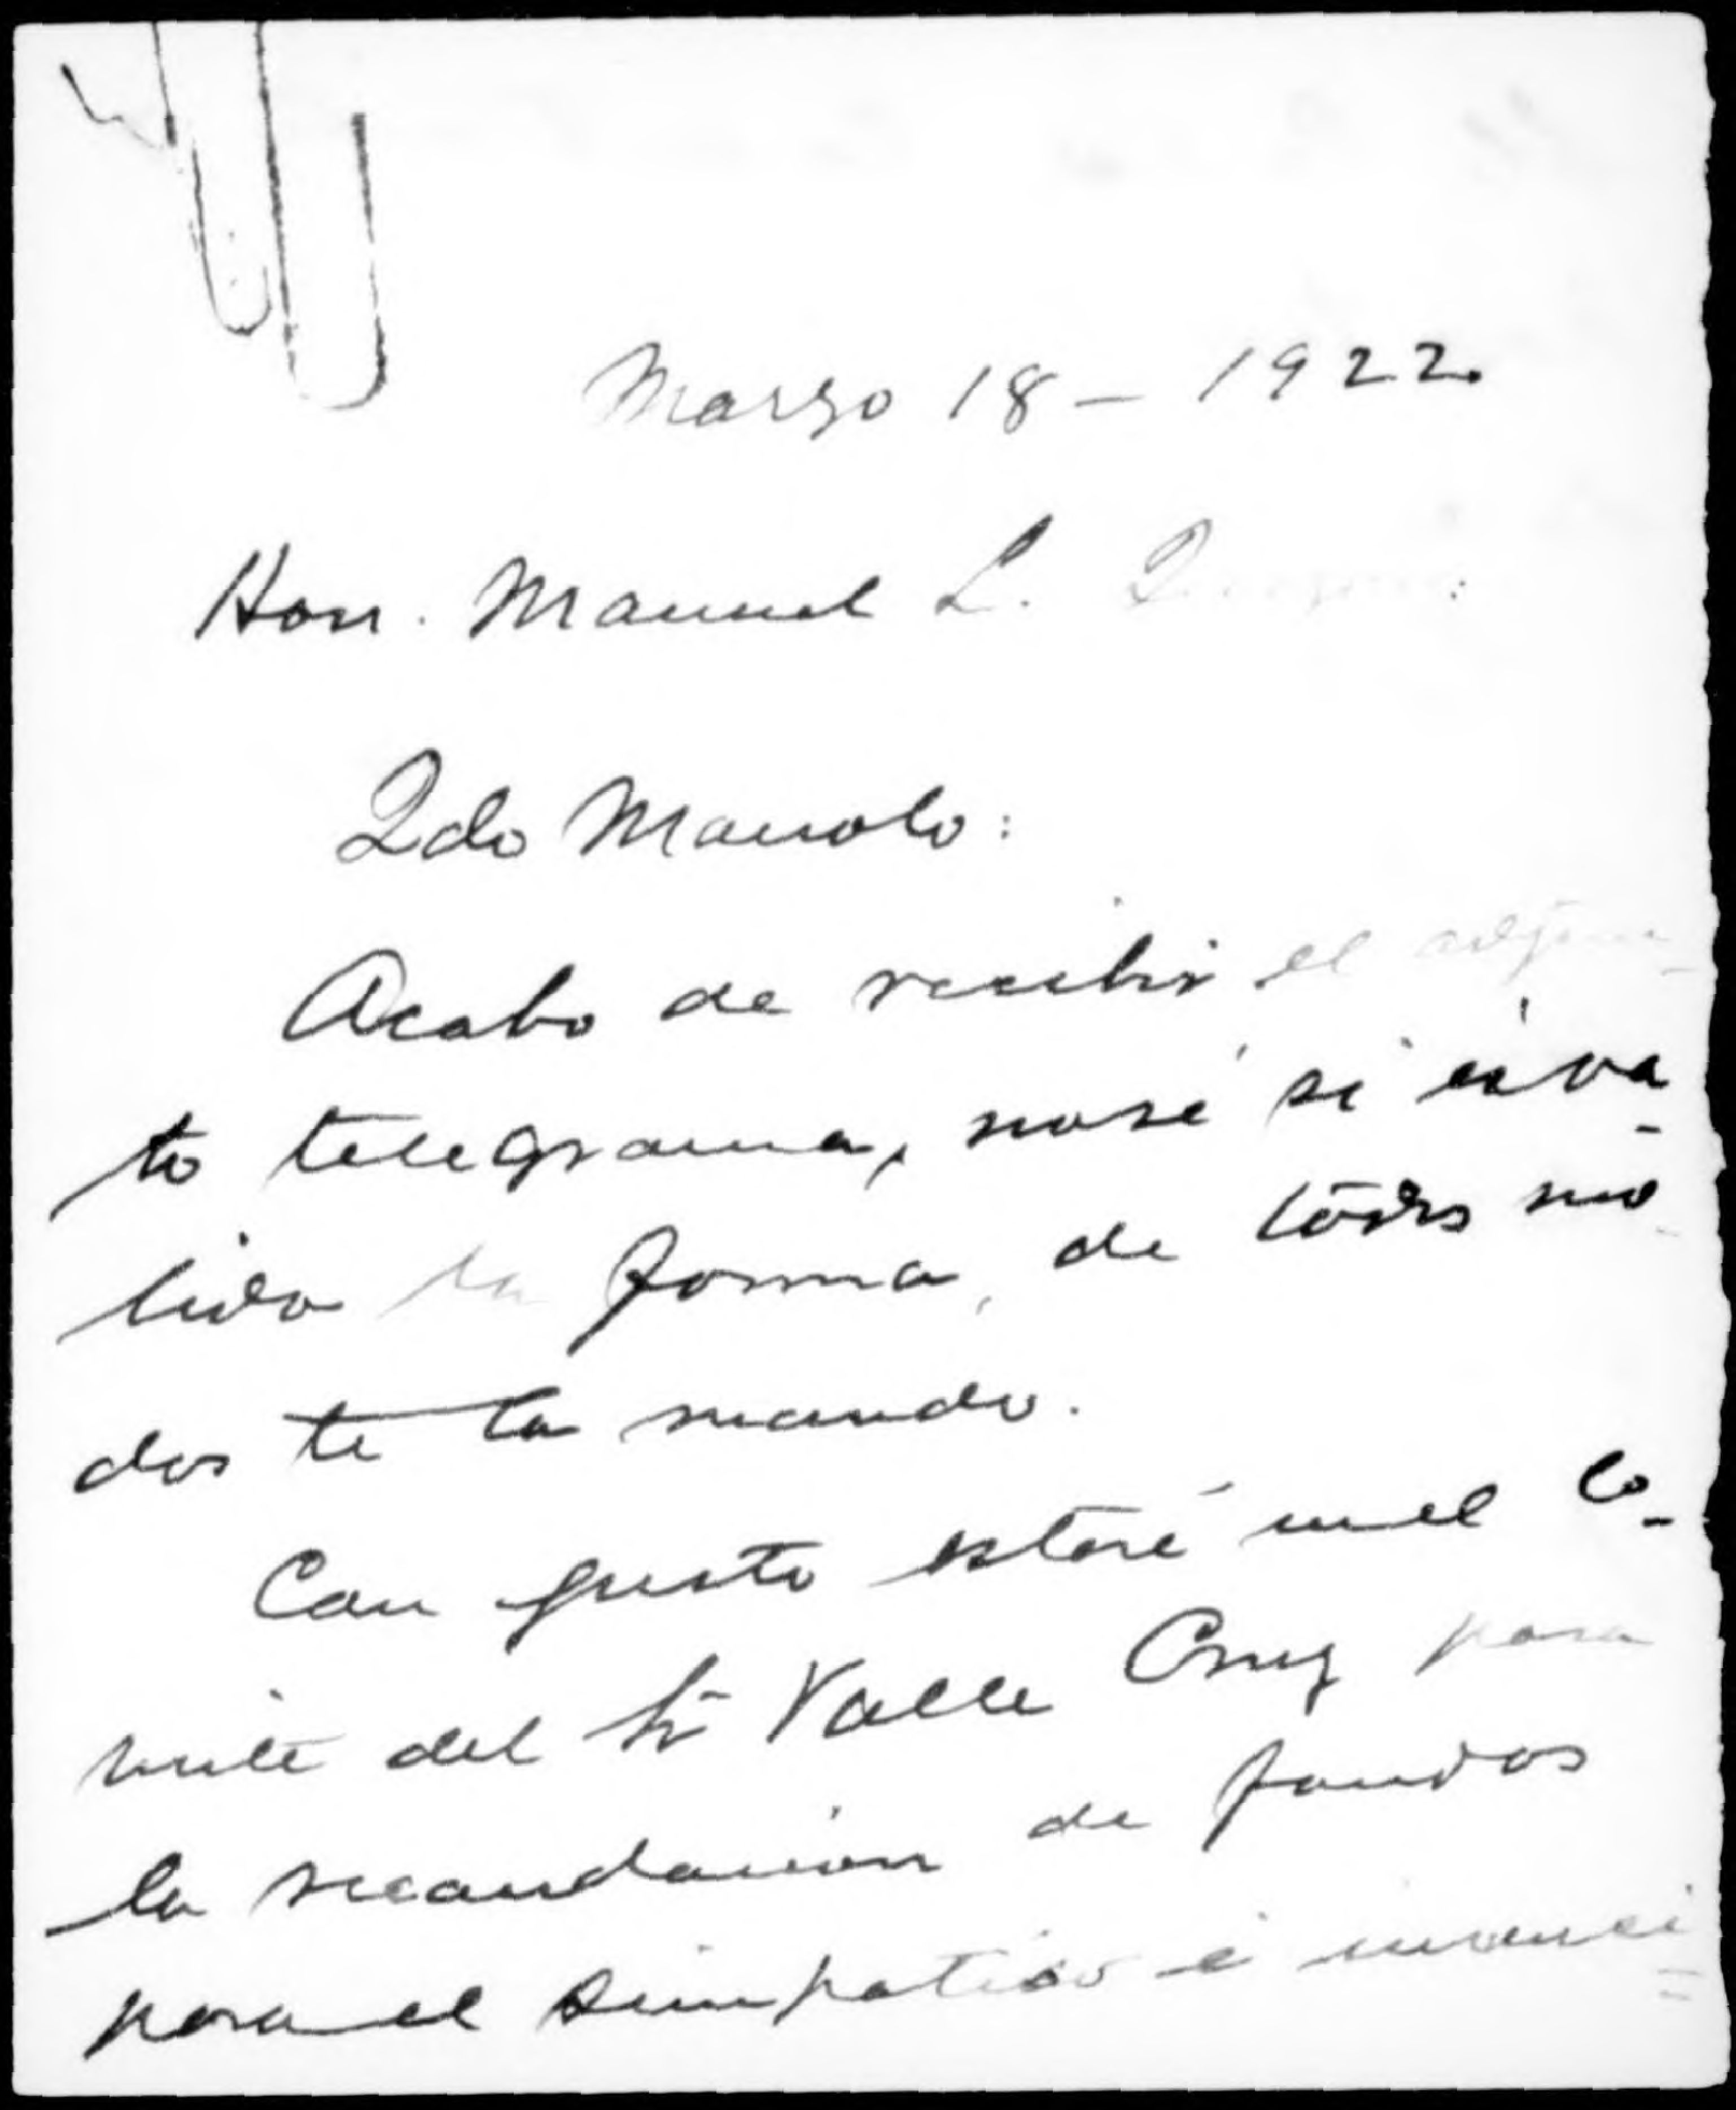 Marzo 18 – 1922.
Hon. Manuel L. Quezon:
Qdo Manolo:
Acabo de recibir el adjun-
to telegrama, nosé si es vá-
lida la forma, de todos mo-
dos te la mando.
Con gusto estaré en el co-
mité del Sr Valle Cruz para
la recaudación de fondos
para el simpático é invenci=